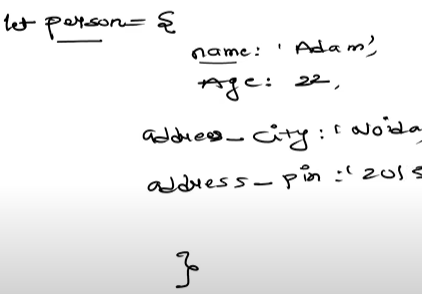 let person = {
name: 'Adam',
Age: 22,
address_city: 'Noida
address_pin: '2015
}